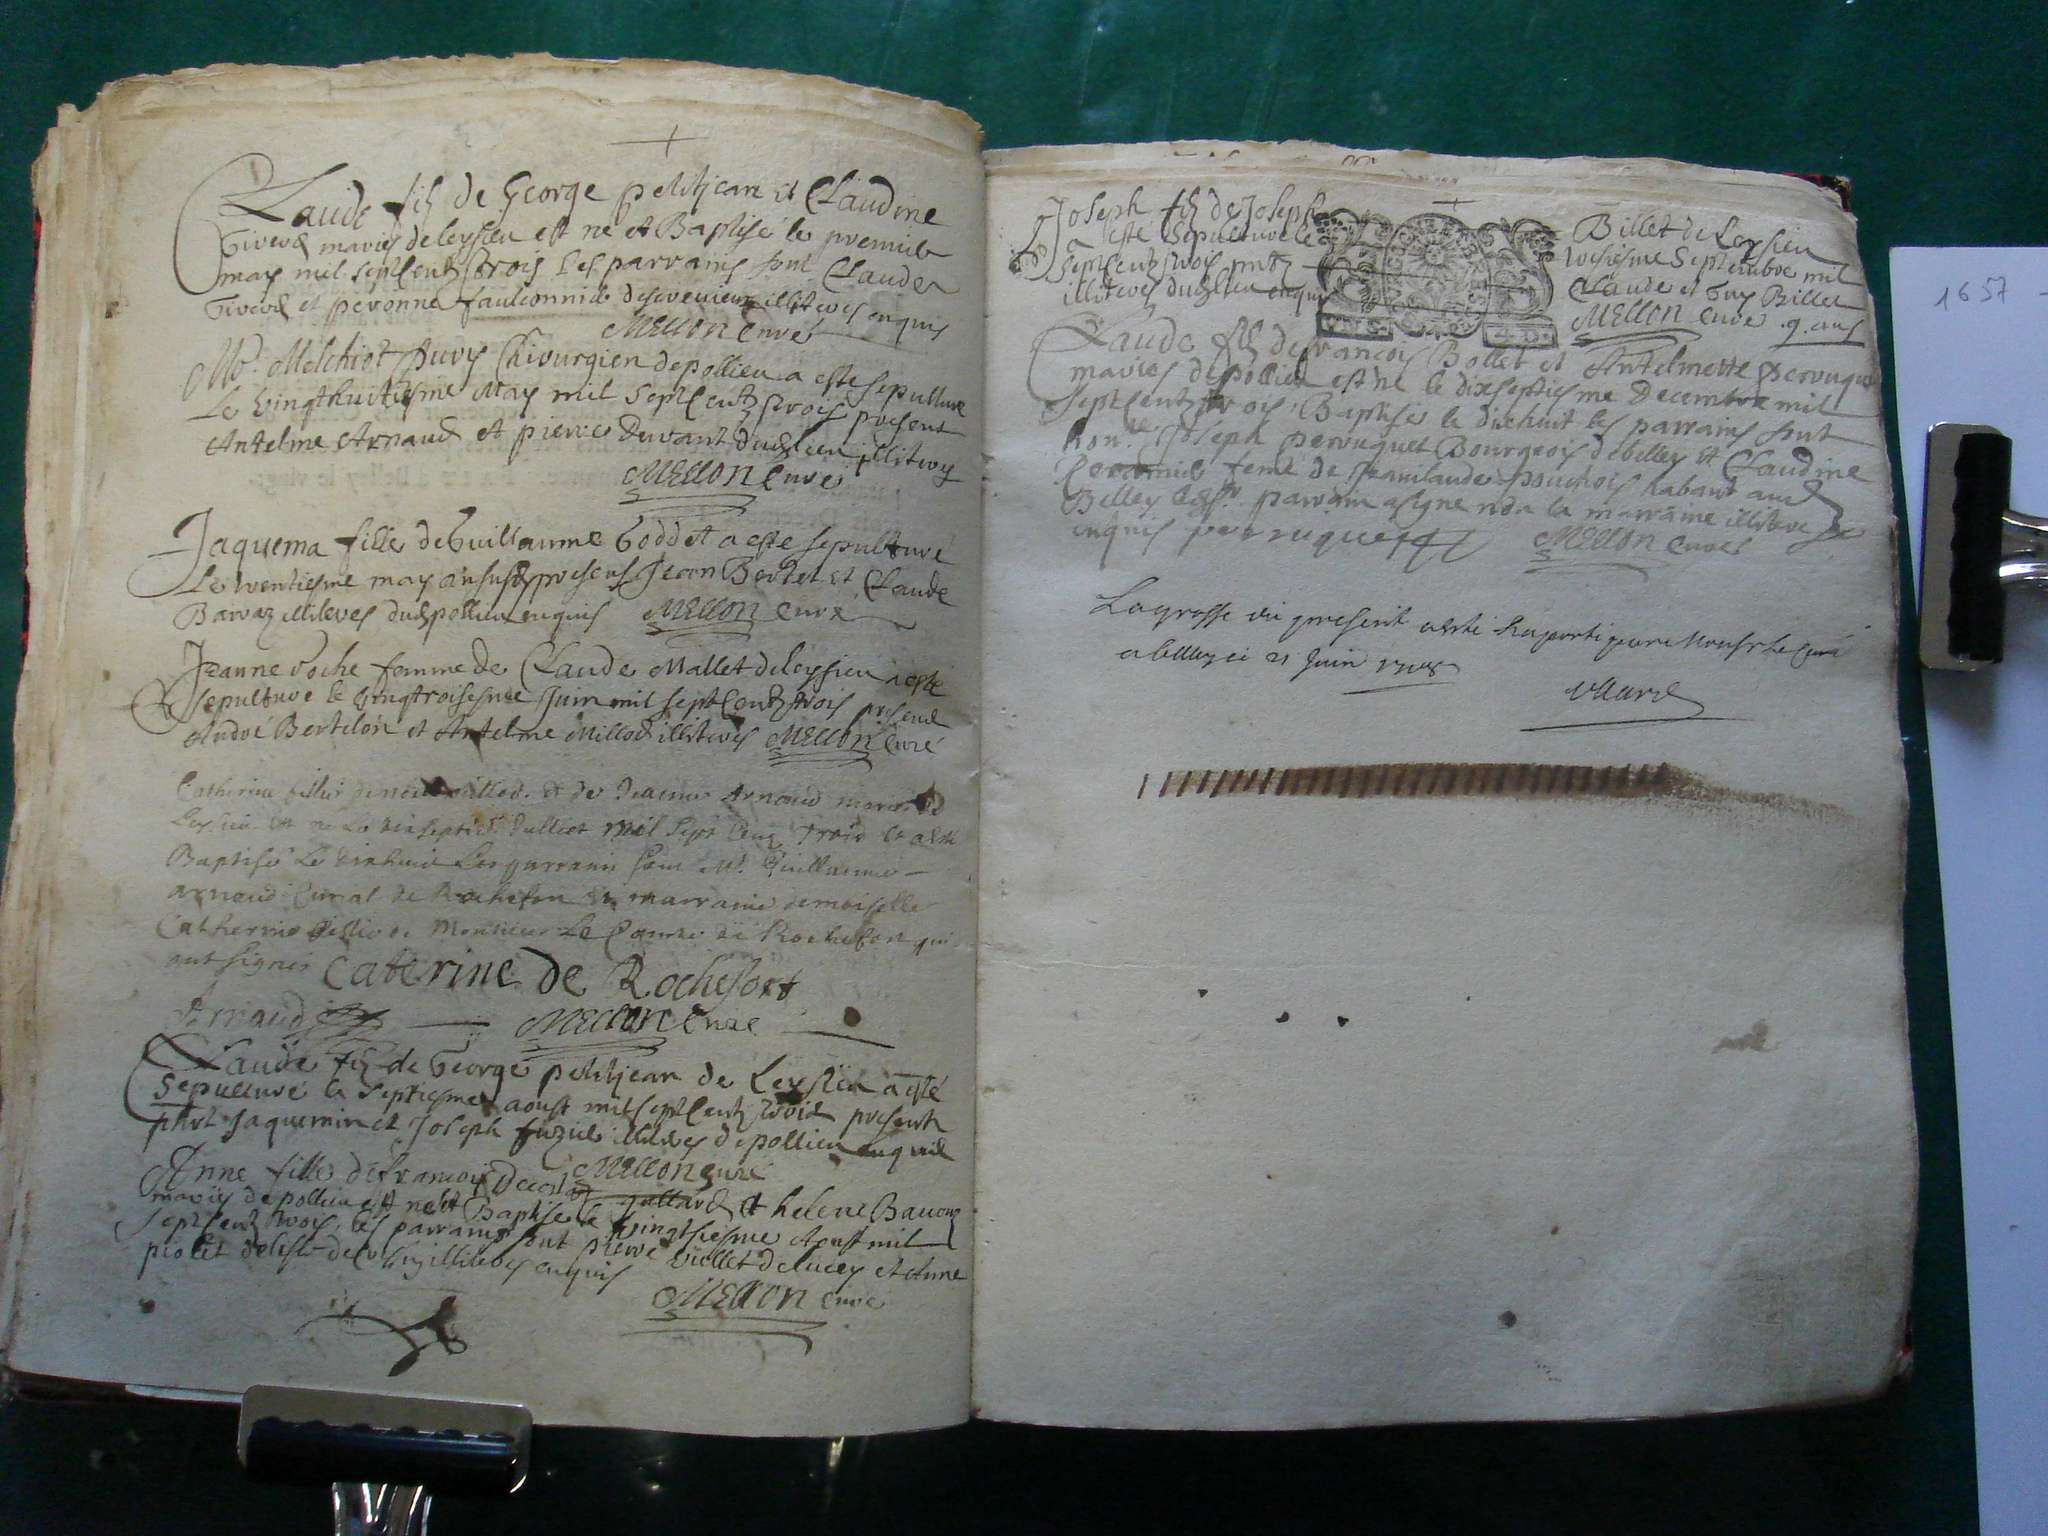 Claude fis de George petitjean et Claudine
mariés de leysieu est né et Baptisé le premier
may mil sept Centz trois les parrains sont Claude
et peronne fauconnier illiteres enquis
MELLON Curé
Mr. Melchiot Chirurgien de pollieu a este sepulturé
Le vingthuitiesme May mil sept Centz trois present
Antelme Arnaud et pierre Durant dudt lieu illiteres
MELLON Curé
Jaquema fille de Guillaume Goddet a este sepulturé
Le trentiesme may an susdt presens Jean Bertet et Claude
Barraz illiteres dudt pollieu enquis MELLON Curé
Jeanne Roche femme de Claude Mallet de leyssieu a esté
sepulturé le vingtroisesme Juin mil sept Centz trois present
André Bertelon et Antelme Milliod illiteres MELLON Curé
Catherine fille de et de Jeanne Arnaud mariés de
est né le dixseptie Julliet mil sept Cens trois et a esté
Baptisé Le dixhuit Les parrains sont Mr. Guillaume
arnaud Curial de Rochefort et marraine demoiselle
Catherine fille de Monsieur Le Comte de Rochefort qui
ont signés Caterine de Rochefort
Arnaud MELLON Curé
Claude fis de George petitjean de Leysieu a esté
sepulturé le septiesme aoust mil sept Centz trois presents
phot Jaquemin et Joseph fuzier illiteres de pollieu enquis
MELLON Curé
Anne fille de francois Decostaz gallard et helene
mariés de pollieu est née et Baptisée le vingtiesme Aoust mil
sept Centz trois, les parrains sont pierre viollet de lucey et Anne
piollet illiteres enquis
MELLON Curé
Joseph fis de Joseph Billet de Leysieu
a esté sepulturé le troisiesme Septembre mil
sept Centz trois pntz Claude et Guy Billet
illiteres dudt lieu enquis MELLON Curé 9. ans
Claude fis de francois Bollet et Antelmette perruquet
mariés de pollieu est né le dixseptiesme Decembre mil
sept Centz trois, Baptisé le dixhuit les parrains sont
hon. Joseph perruquet Bourgeois de belley et Claudine
feme de Jeanclaude pouchoit habant aud
Belley led sr. parrain a signé non la marraine illitere
enquis perruquet MELLON Curé
La grosse du present a esté Raporté par Monsr le Curé
a belley ce 21 Juin 1705
1657